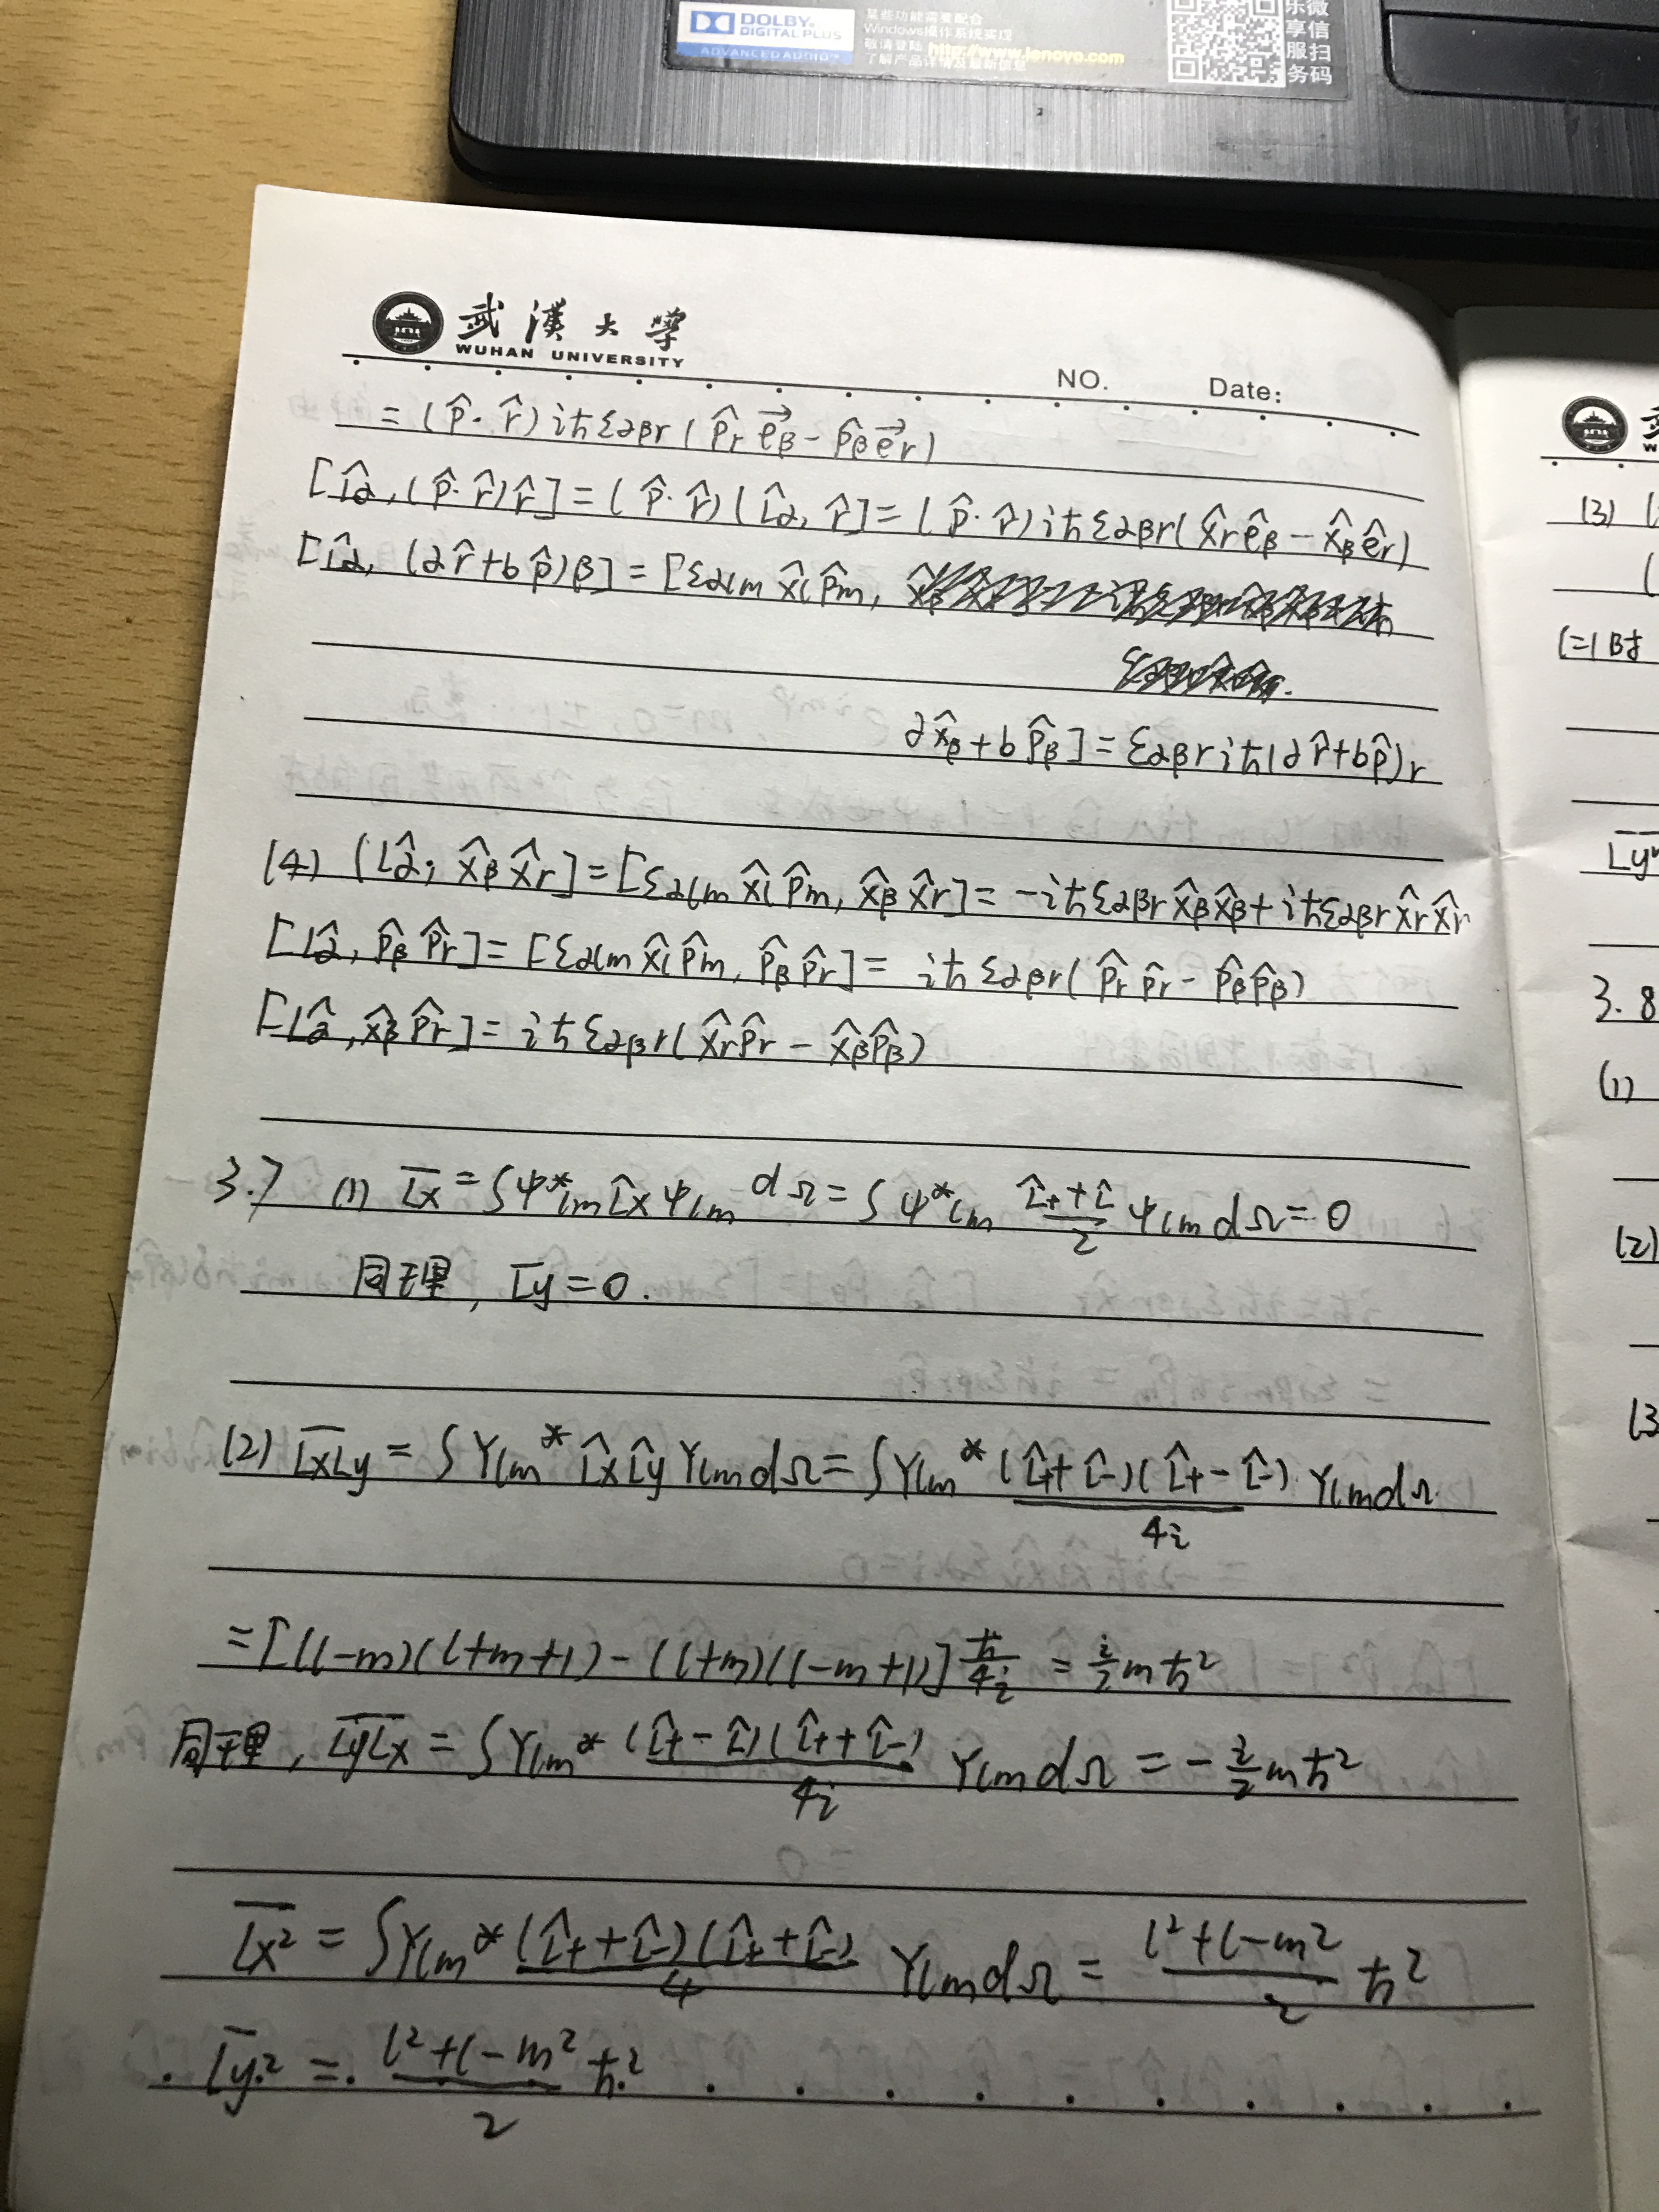 DOLBY.
DIGITAL PLUS
ADVANCED AUDIO™
某些功能需要配合
Windows操作系统实现
敬请登陆 http://www.lenovo.com
了解产品详情及最新信息
乐微
享信
服扫
务码
武漢大學
WUHAN UNIVERSITY
NO. Date:
= (p̂·r̂) iħ εαβγ (p̂γ e⃗β − p̂β e⃗γ)
[L̂α, (p̂·r̂)r̂] = (p̂·r̂) [L̂α, r̂] = (p̂·r̂) iħ εαβγ (x̂γ êβ − x̂β êγ)
[L̂α, (ar̂+bp̂)β] = [εαlm x̂l p̂m,
ax̂β + bp̂β] = εαβγ iħ (ar̂+bp̂)γ
(4) [L̂α, x̂β x̂γ] = [εαlm x̂l p̂m, x̂β x̂γ] = −iħ εαβγ x̂β x̂β + iħ εαβγ x̂γ x̂γ
[L̂α, p̂β p̂γ] = [εαlm x̂l p̂m, p̂β p̂γ] = iħ εαβγ (p̂γ p̂γ − p̂β p̂β)
[L̂α, x̂β p̂γ] = iħ εαβγ (x̂γ p̂γ − x̂β p̂β)
3.7 (1) L̄x = ∫ψ*lm L̂x ψlm dΩ = ∫ψ*lm (L̂+ + L̂)/2 ψlm dΩ = 0
同理, L̄y = 0.
(2) L̄xLy = ∫Ylm* L̂x L̂y Ylm dΩ = ∫Ylm* (L̂+ + L̂-)(L̂+ − L̂-)/4i Ylm dΩ
= [(l−m)(l+m+1) − (l+m)(l−m+1)] ħ/4i = i/2 mħ²
同理, L̄yLx = ∫Ylm* (L̂+ − L̂)(L̂+ + L̂-)/4i Ylm dΩ = − i/2 mħ²
L̄x² = ∫Ylm* (L̂+ + L̂-)(L̂+ + L̂-)/4 Ylm dΩ = (l²+l−m²)/2 ħ²
L̄y² = (l²+l−m²)/2 ħ²
(3)
(
l=1时
L̄y²
3.8
(1)
(2)
(3